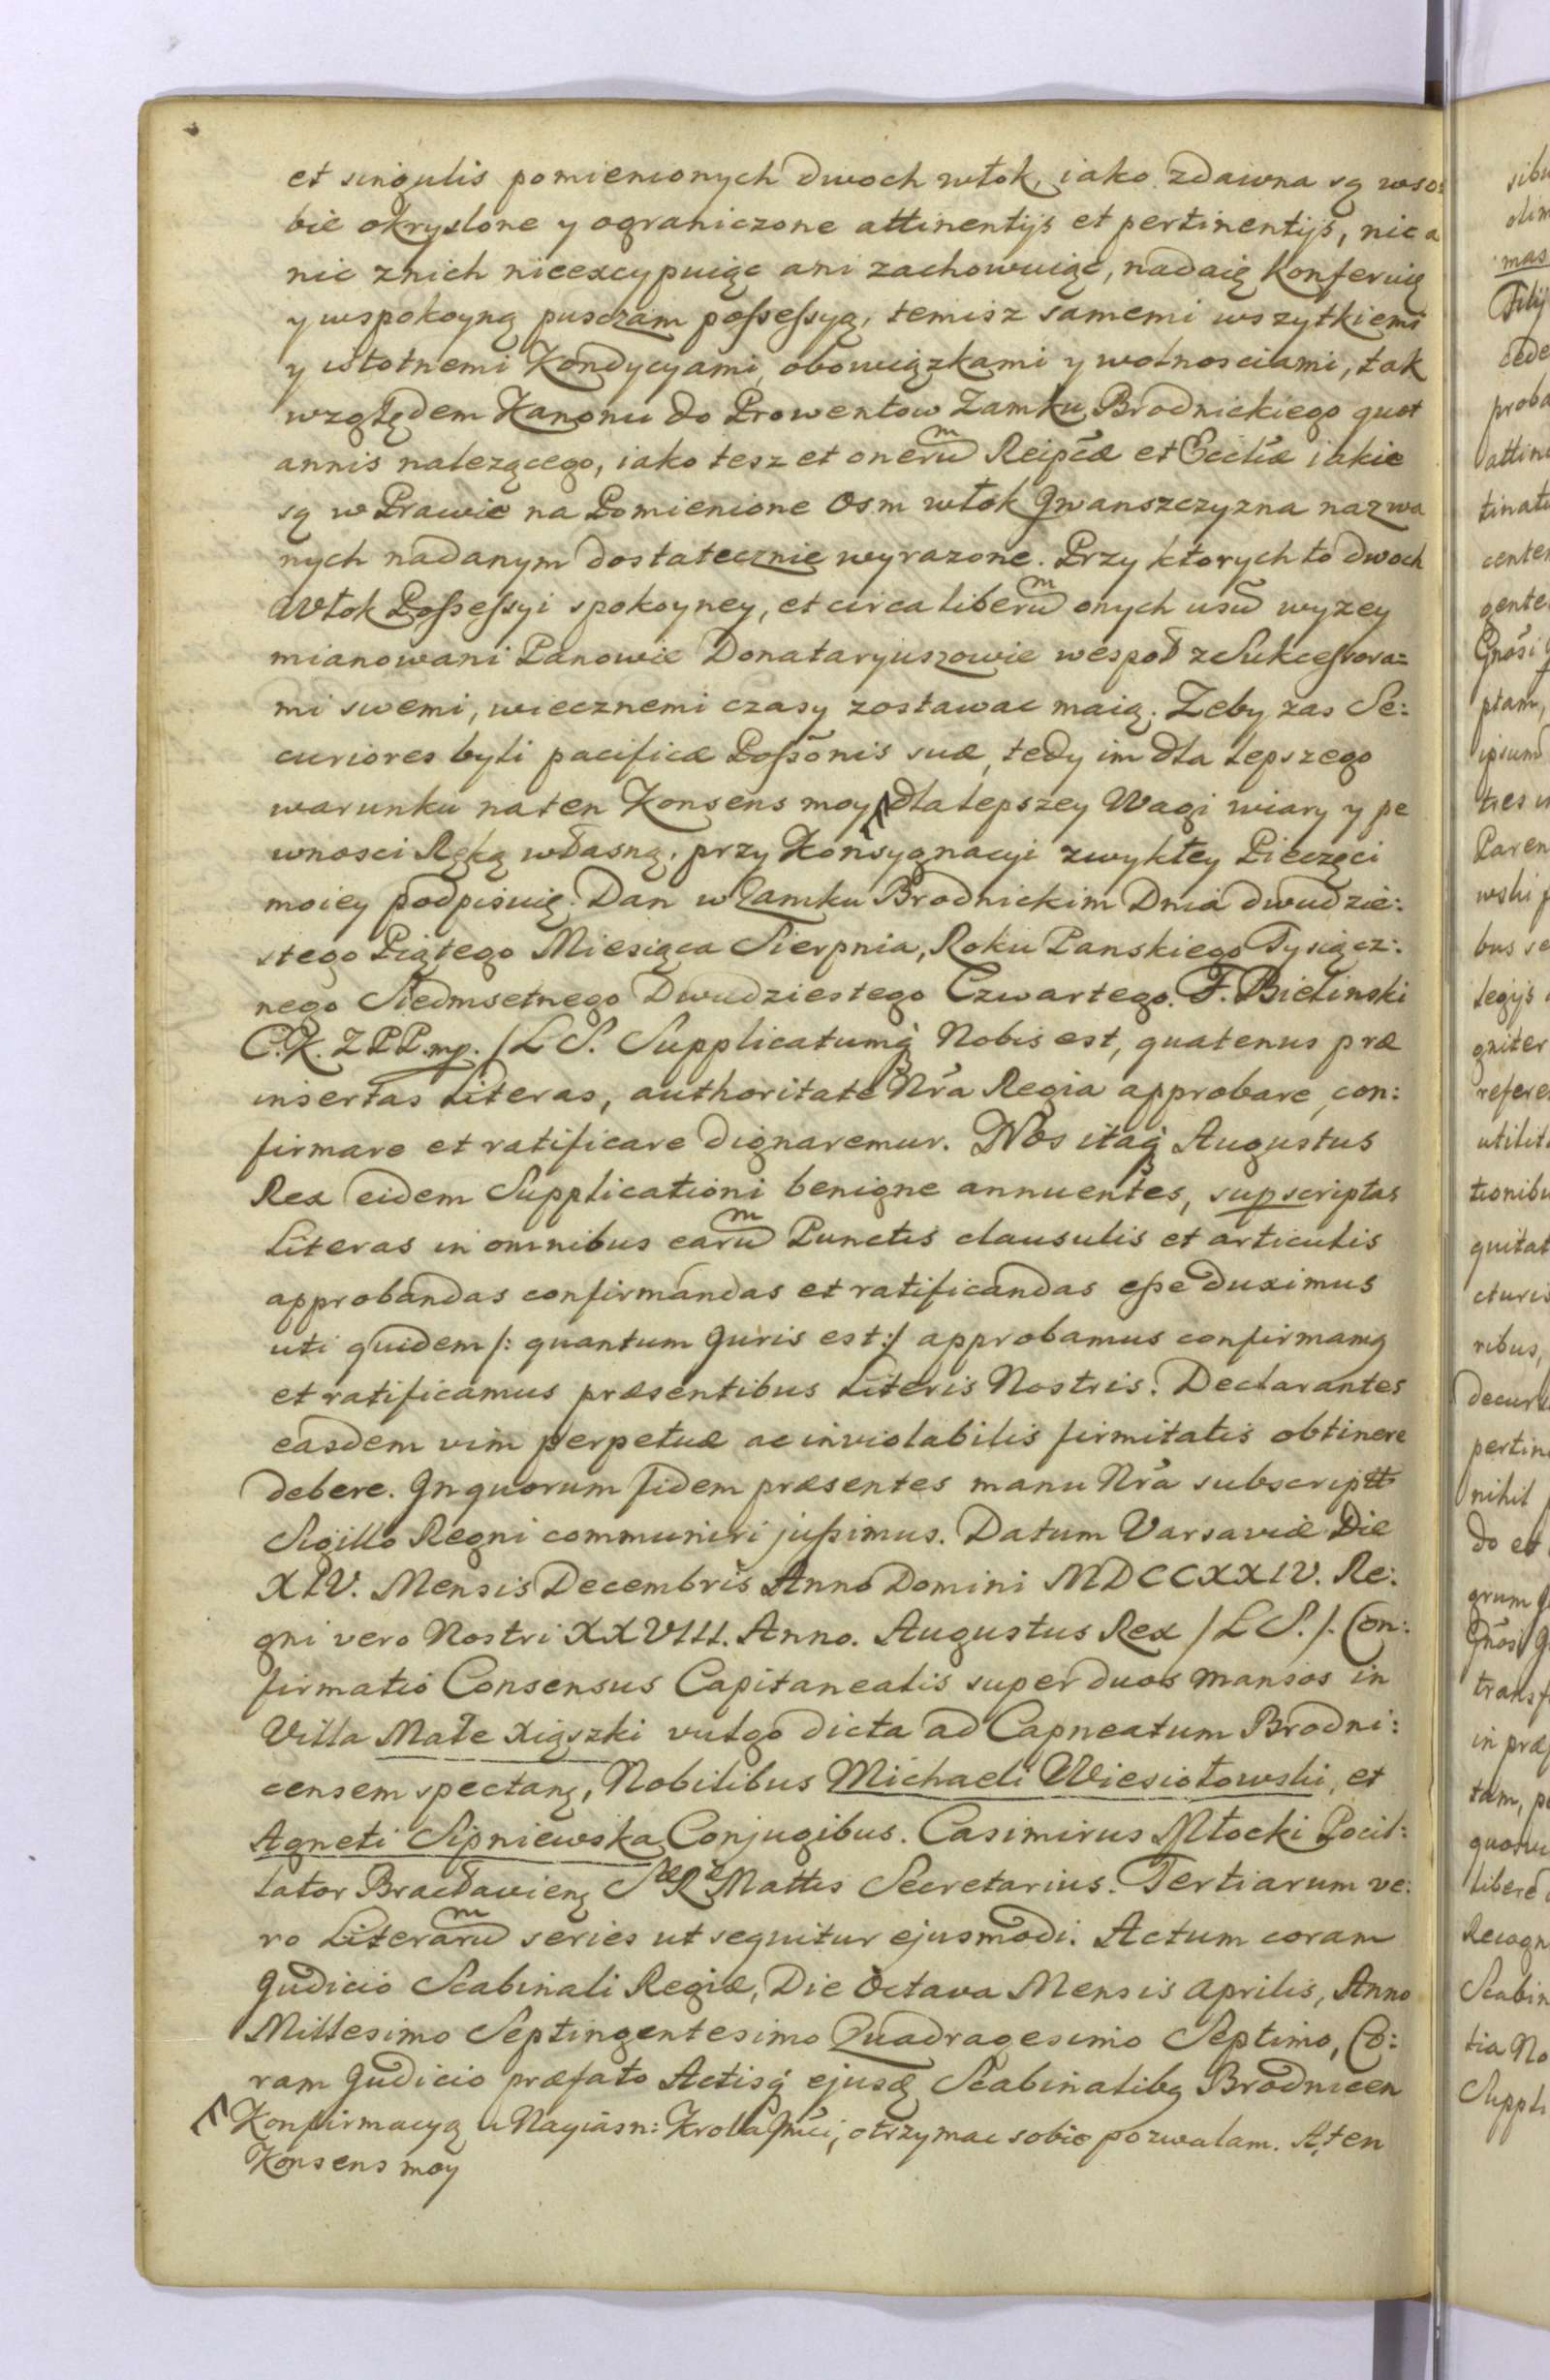 et singulis pomienionych dwoch włok, iako zdawna są wso:
bie okryslone y ograniczone attinentijs et pertinentijs, nic a
nic znich nieexcypuiąc ani zachowuiąc, nadaię konferuię
y wspokoyną pusczam possessyą, temisz samemi wszytkiemi
y istotnemi Kondycyami, obowiązkami y wolnosciami, tak
względem Kanonu do Prowentow Zamku Brodnickiego quot
annis nalezącego, iako tesz et onerum Reipcæ et Eccliæ iakie
są w Prawie na Pomienione Osm włok Jwanszczyzna nazwa
nych nadanym dostatecznie wyrazone. Przy ktorych to dwoch
Włok Possessyi spokoyney, et circa liberum onych usu wyzey
mianowani Panowie Donataryuszowie wespoł z Sukcessora=
mi swemi, wiecznemi czasy zostawac maią. Zeby zas Se:
curiores byli pacificæ Possonis suæ, tedy im dla lepszego
warunku na ten Konsens moy dla lepszey Wagi wiary y pe
wnosci Ręką własną, przy Konsygnacyi zwykłey Pieczęci
moiey podpisuię. Dan w Zamku Brodnickim Dnia dwudzie:
stego Piątego Miesiąca Sierpnia, Roku Panskiego Tysiącz:
nego Siedmsetnego Dwudziestego Czwartego. F. Bielinski
C. K. Z P P. mp. /L S. Supplicatumq Nobis est, quatenus præ
insertas Literas, authoritate Nra Regia approbare, con:
firmare et ratificare dignaremur. Nos itaq Augustus
Rex eidem Supplicationi benigne annuentes, supscriptas
Literas in omnibus earum Punctis clausulis et articulis
approbandas confirmandas et ratificandas esse duximus
uti quidem /: quantum Juris est :/ approbamus confirmamq
et ratificamus præsentibus Literis Nostris. Declarantes
easdem vim perpetuæ ac inviolabilis firmitatis obtinere
debere. Jn quorum fidem præsentes manu Nra subscriptt
Sigillo Regni communiri jussimus. Datum Varsaviæ Die
XIV. Mensis Decembris Anno Domini MDCCXXIV. Re:
gni vero Nostri XXVIII. Anno. Augustus Rex /L S./. Con:
firmatio Consensus Capitanealis super duos mansos in
Villa Małe Xiąszki vulgo dicta ad Capneatum Brodni:
censem spectanq, Nobilibus Michaeli Wiesiołowski, et
Agneti Sipniewska Conjugibus. Casimirus Młocki Pocil:
lator Bracłavienq Sæ Ræ Mattis Secretarius. Tertiarum ve:
ro Literarum series ut sequitur ejusmodi. Actum coram
Judicio Scabinali Regiæ, Die Octava Mensis Aprilis, Anno
Millesimo Septingentesimo Quadragesimo Septimo, Co:
ram Judicio præfato Actisq ejusq Scabinalibq Brodnicen
Konfirmacyą u Nayiasn: Krola Jmci, otrzymac sobie pozwalam. A ten
Konsens moy